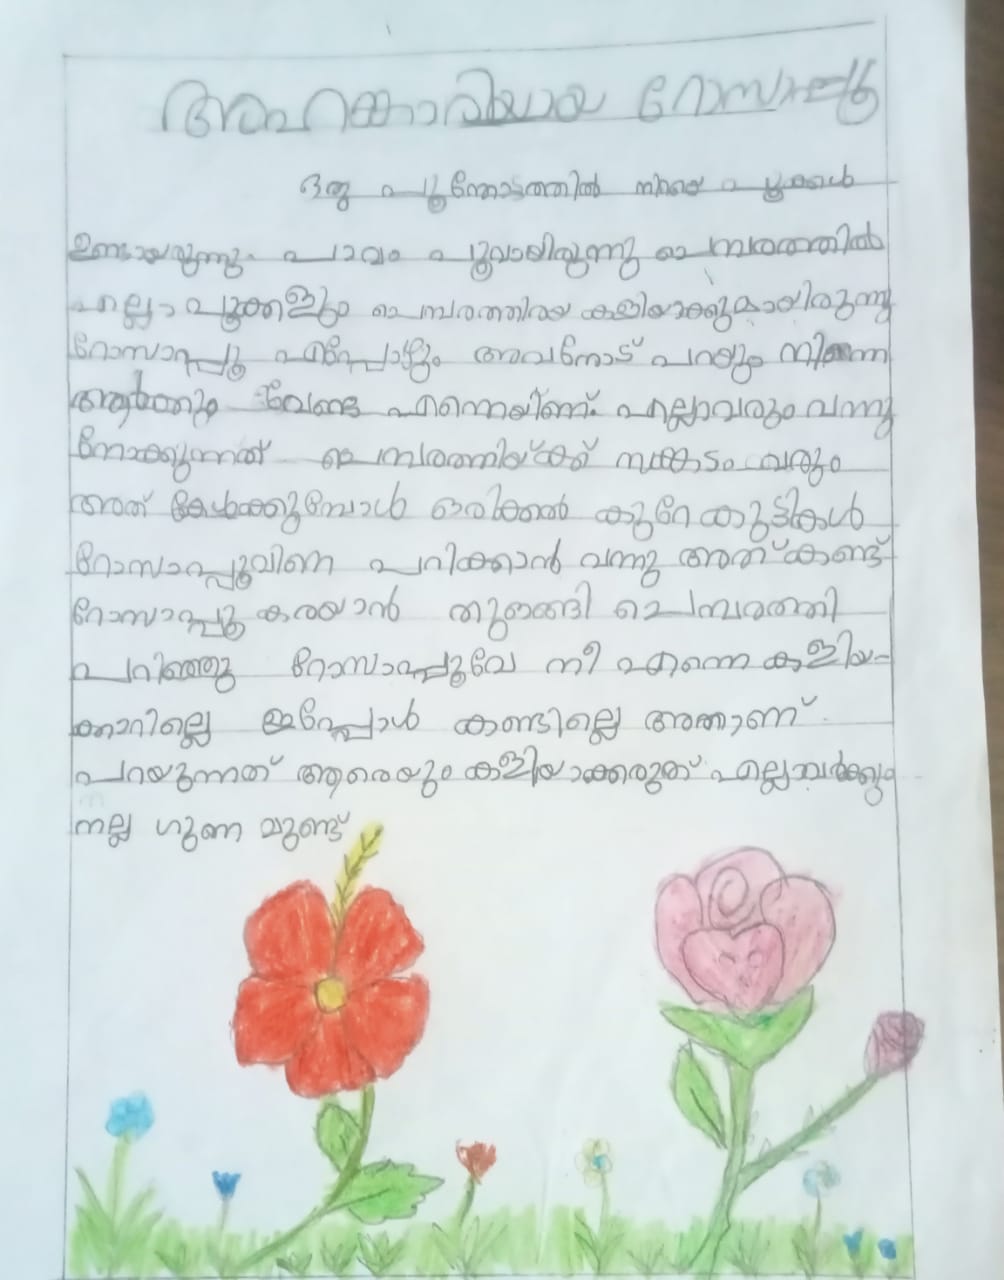 അഹങ്കാരിയായ റോസാപ്പൂ
ഒരു പൂന്തോട്ടത്തിൽ നിറയെ പൂക്കൾ
ഉണ്ടായിരുന്നു. പാവം പൂവായിരുന്നു ചെമ്പരത്തി
എല്ലാ പൂക്കളും ചെമ്പരത്തിയെ കളിയാക്കുമായിരുന്നു
റോസാപ്പൂ എപ്പോഴും അവനോട് പറയും നിന്നെ
ആർക്കും വേണ്ട എന്നെയാണ് എല്ലാവരും വന്നു
നോക്കുന്നത് ചെമ്പരത്തിയ്ക്ക് സങ്കടം വരും
അത് കേൾക്കുമ്പോൾ ഒരിക്കൽ കുറേ കുട്ടികൾ
റോസാപ്പൂവിനെ പറിക്കാൻ വന്നു അത് കണ്ട്
റോസാപ്പൂ കരയാൻ തുടങ്ങി ചെമ്പരത്തി
പറഞ്ഞു റോസാപ്പൂവേ നീ എന്നെ കളിയാ-
ക്കാറില്ലെ ഇപ്പോൾ കണ്ടില്ലെ അതാണ്
പറയുന്നത് ആരെയും കളിയാക്കരുത് എല്ലാവർക്കും
നല്ല ഗുണ മുണ്ട്